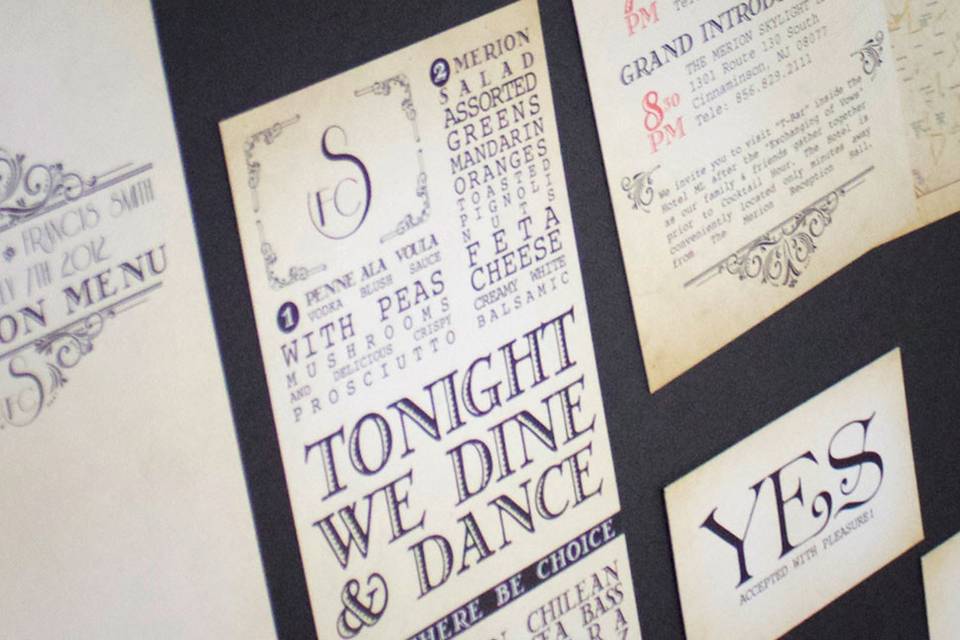 FRANCIS SMITH
7TH 2012
ON MENU
S
FC
S
FC
1 PENNE ALA VOULA
VODKA BLUSH SAUCE
WITH PEAS
MUSHROOMS
AND DELICIOUS CRISPY
PROSCIUTTO
2 MERION
SALAD
ASSORTED
GREENS
MANDARIN
ORANGES
TOASTED
PIGNOLI
NUTS
FETA
CHEESE
CREAMY WHITE
BALSAMIC
TONIGHT
WE DINE
& DANCE
HERE BE CHOICE
CHILEAN
BASS
PM
GRAND
THE MERION SKYLIGHT
1301 Route 130 South
Cinnaminson, NJ 08077
Tele: 856.829.2111
830
PM
We invite you to visit "T-Bar" inside the
Hotel ML after the "Exchanging of Vows"
as our family & friends gather together
prior to Cocktail Hour. The Hotel is
conveniently located only minutes away
from The Merion Reception Hall.
YES
ACCEPTED WITH PLEASURE!